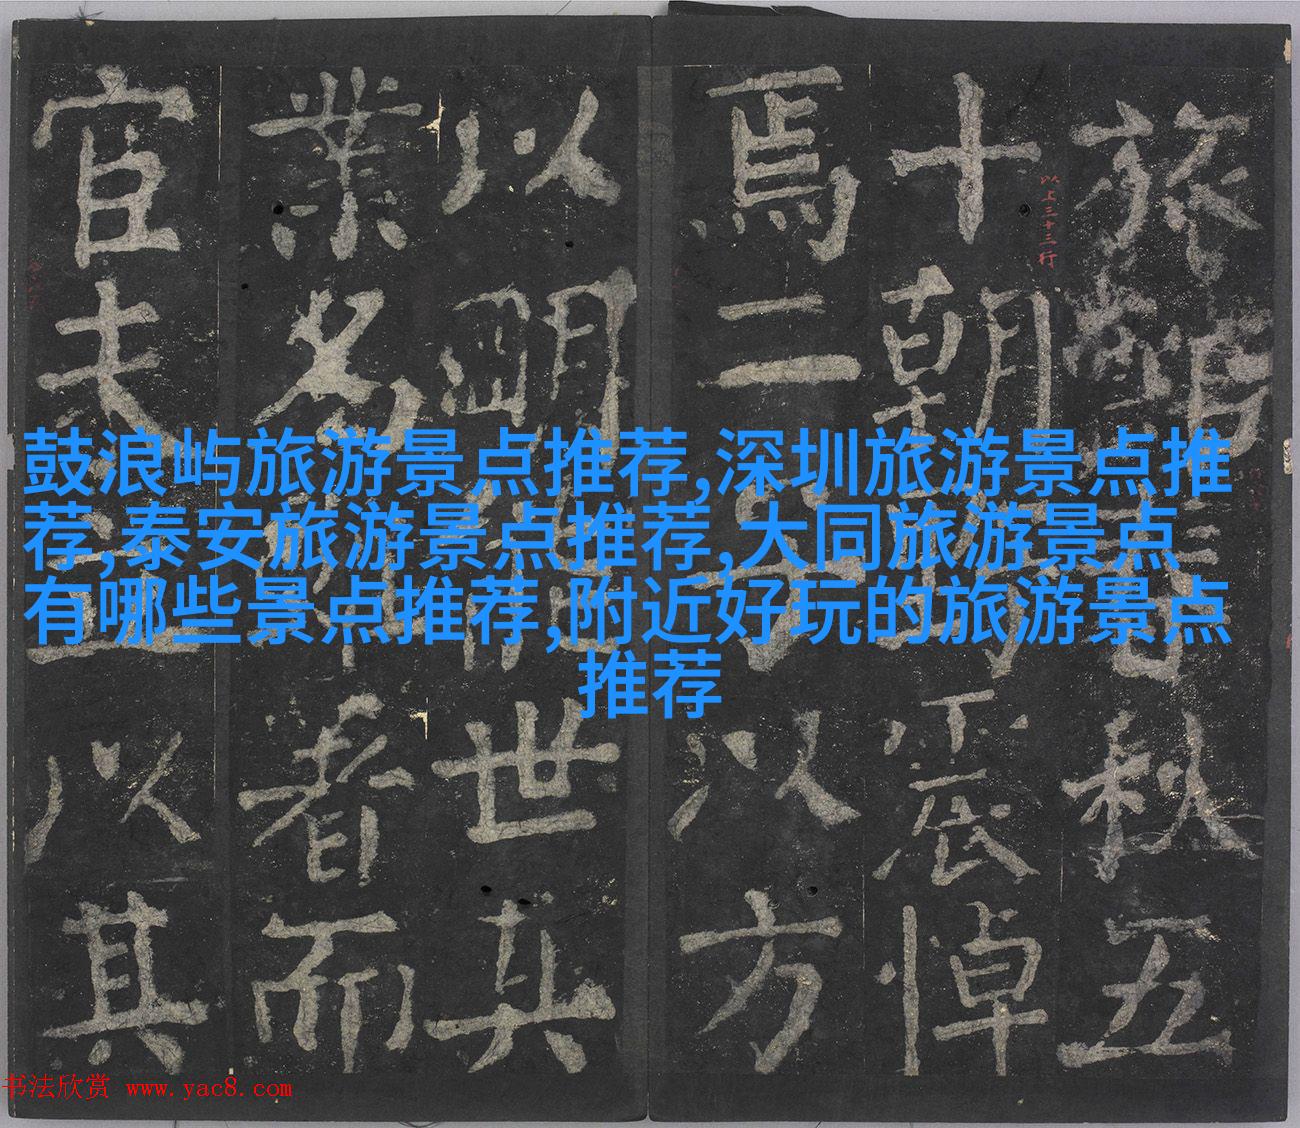 鼓浪屿旅游景点推荐,深圳旅游景点推
荐,泰安旅游景点推荐,大同旅游景点
有哪些景点推荐,附近好玩的旅游景点
推荐
旅館秋五
十朝震悼
焉二以方
以明世其
業名者而
官夫以其
以上三十三行
书法欣赏 www.yac8.com